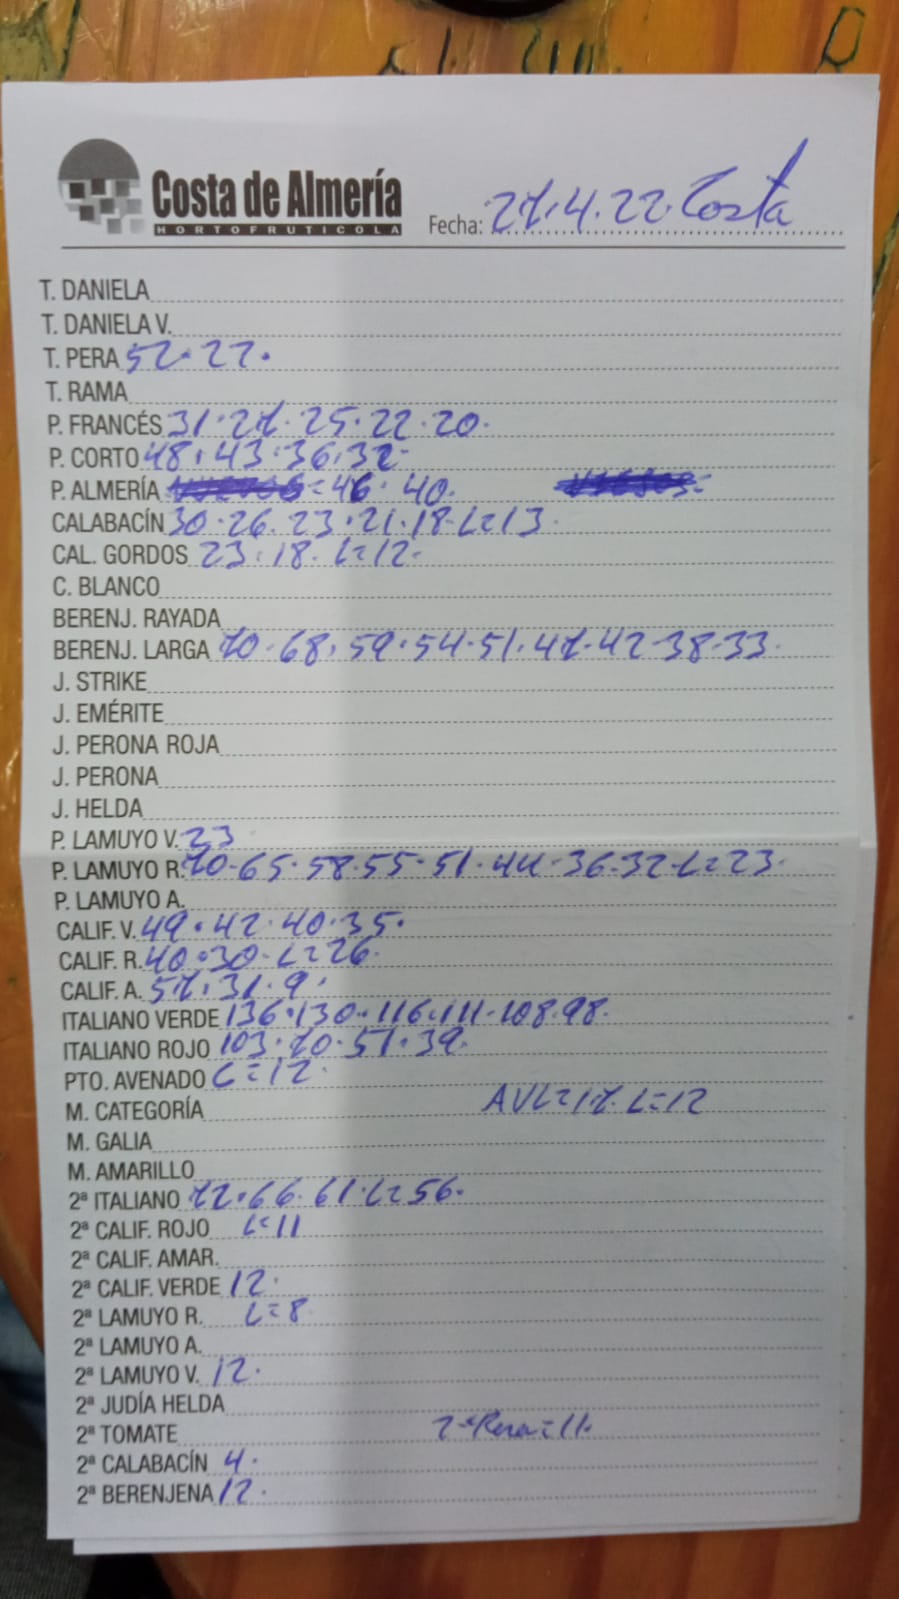 Costa de Almería
HORTOFRUTICOLA
Fecha: 27.4.22. Costa
T. DANIELA
T. DANIELA V.
T. PERA 52.27.
T. RAMA
P. FRANCÉS 31.27.25.22.20.
P. CORTO 48.43.36.32-
P. ALMERÍA = 46.40. =
CALABACÍN 30.26.23.21.18.L=13.
CAL. GORDOS 23.18. L=12-
C. BLANCO
BERENJ. RAYADA
BERENJ. LARGA 70.68.59.54.51.47.42-38-33.
J. STRIKE
J. EMÉRITE
J. PERONA ROJA
J. PERONA
J. HELDA
P. LAMUYO V. 23
P. LAMUYO R. 70-65.58.55.51.44.36.32-L=23.
P. LAMUYO A.
CALIF. V. 49.42.40.35.
CALIF. R. 40.30-L=26.
CALIF. A. 57.31.9.
ITALIANO VERDE 136.130.116.111-108.98.
ITALIANO ROJO 103.70.51.39.
PTO. AVENADO L=12.
M. CATEGORÍA AVL=17. L=12
M. GALIA
M. AMARILLO
2ª ITALIANO 72.66.61.L=56.
2ª CALIF. ROJO L=11
2ª CALIF. AMAR.
2ª CALIF. VERDE 12.
2ª LAMUYO R. L=8
2ª LAMUYO A.
2ª LAMUYO V. 12.
2ª JUDÍA HELDA
2ª TOMATE 2ª Pera=11.
2ª CALABACÍN 4.
2ª BERENJENA 12.